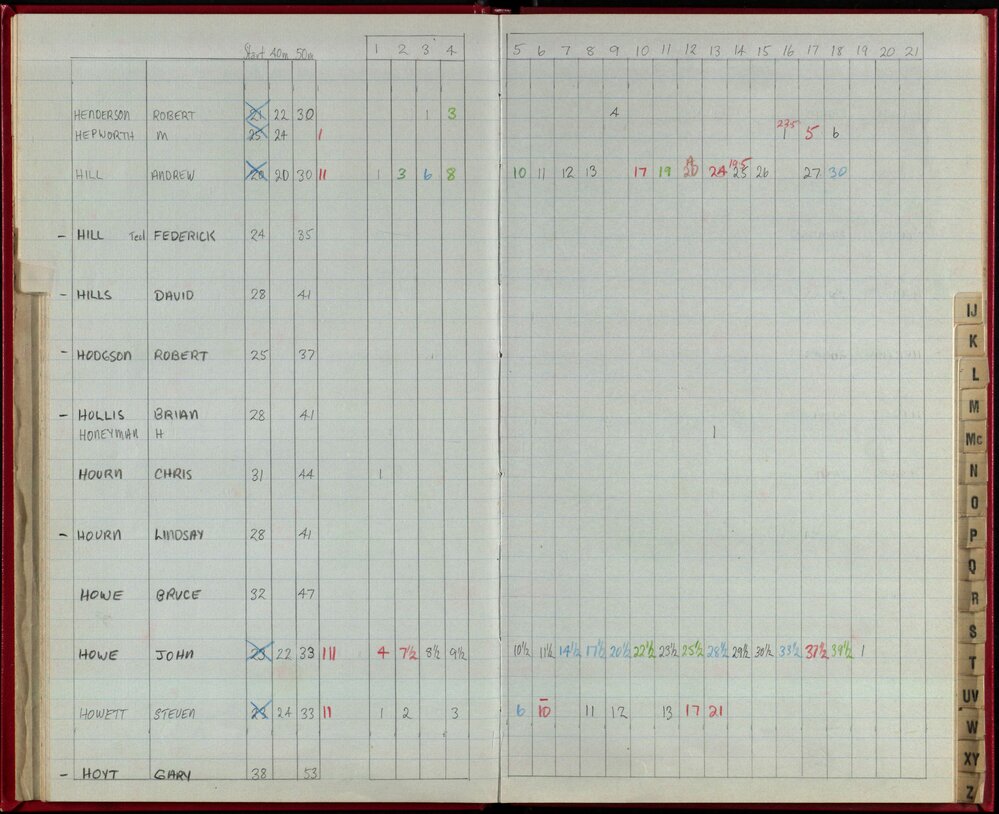 Start 40m 50m 1 2 3 4 5 6 7 8 9 10 11 12 13 14 15 16 17 18 19 20 21
HENDERSON ROBERT 21 22 30 1 3 4
HEPWORTH M 25 24 1 5 6
HILL ANDREW 20 20 30 11 1 3 6 8 10 11 12 13 17 19 20 24 25 26 27 30
- HILL Ted FEDERICK 24 35
- HILLS DAVID 28 41
- HODGSON ROBERT 25 37
- HOLLIS BRIAN 28 41
HONEYMAN H 1
HOURN CHRIS 31 44 1
- HOURN LINDSAY 28 41
HOWE BRUCE 32 47
HOWE JOHN 23 22 33 111 4 7½ 8½ 9½ 10½ 11½ 14½ 17½ 20½ 22½ 23½ 25½ 28½ 29½ 30½ 33½ 37½ 39½ 1
HOWETT STEVEN 24 33 11 1 2 3 6 10 11 12 13 17 21
- HOYT GARY 38 53
IJ
K
L
M
Mc
N
O
P
Q
R
S
T
UV
W
XY
Z